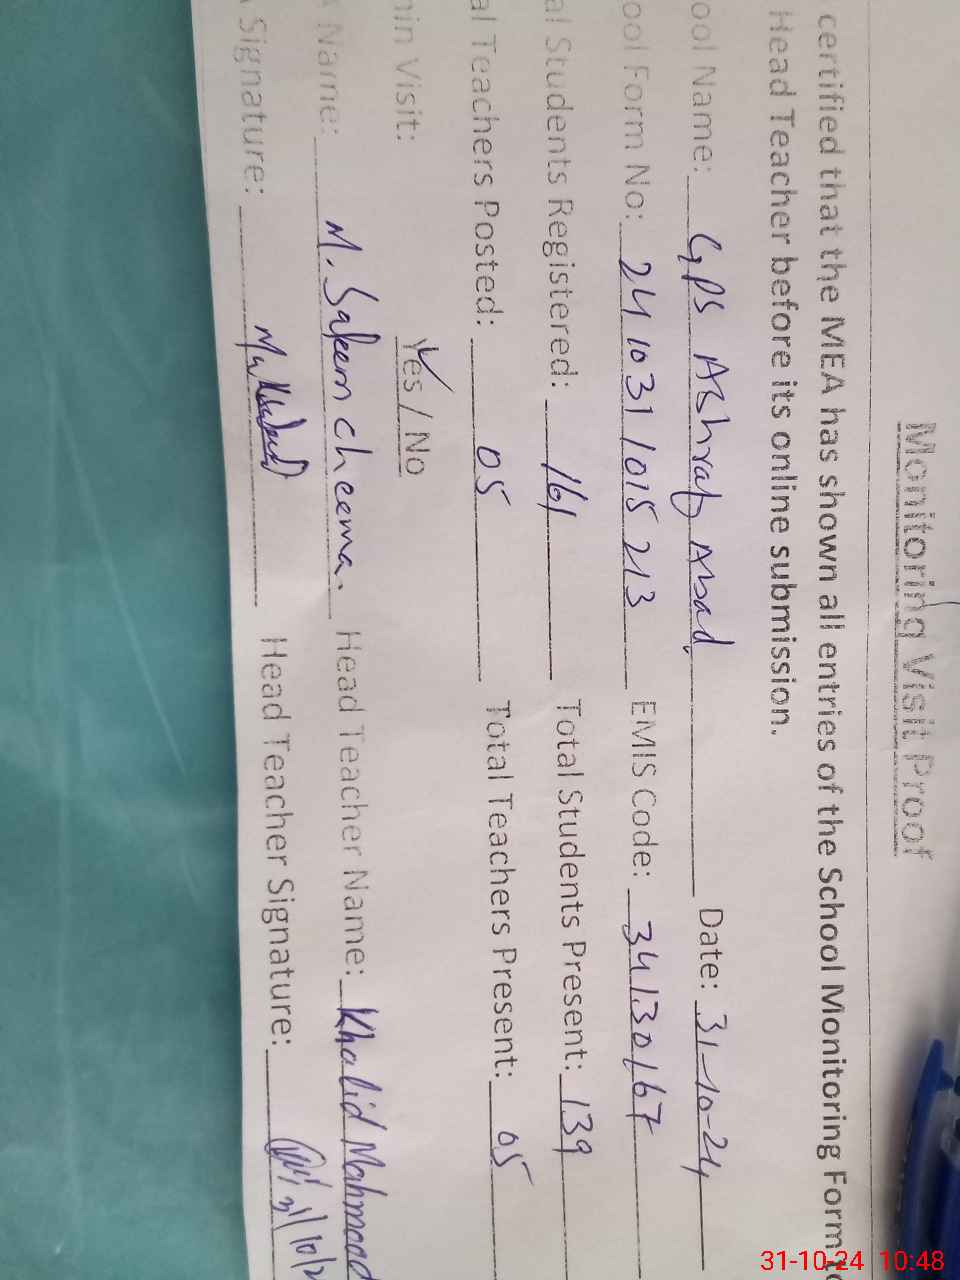 Monitoring Visit Proof
certified that the MEA has shown all entries of the School Monitoring Form to
Head Teacher before its online submission.
ool Name: GPS Ashraf Abad Date: 31-10-24
ool Form No: 2410311015213 EMIS Code: 34130167
al Students Registered: 161 Total Students Present: 139
al Teachers Posted: 05 Total Teachers Present: 05
min Visit: Yes / No
Name: M. Saleem cheema. Head Teacher Name: Khalid Mahmood
Signature: Head Teacher Signature:
31-10-24 10:48